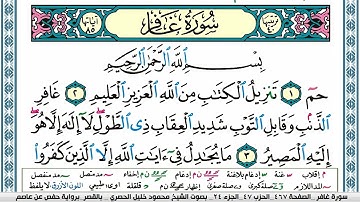 سُورَةُ غَافِرٍ
بِسْمِ ٱللَّهِ ٱلرَّحْمَٰنِ ٱلرَّحِيمِ
حمٓ ١ تَنزِيلُ ٱلْكِتَٰبِ مِنَ ٱللَّهِ ٱلْعَزِيزِ ٱلْعَلِيمِ ٢ غَافِرِ
ٱلذَّنۢبِ وَقَابِلِ ٱلتَّوْبِ شَدِيدِ ٱلْعِقَابِ ذِى ٱلطَّوْلِ لَآ إِلَٰهَ إِلَّا هُوَ
إِلَيْهِ ٱلْمَصِيرُ ٣ مَا يُجَٰدِلُ فِىٓ ءَايَٰتِ ٱللَّهِ إِلَّا ٱلَّذِينَ كَفَرُوا۟
سورة غافر الصفحة ٤٦٧ الحزب ٤٧ الجزء ٢٤ بصوت الشيخ محمود خليل الحصري بالقصر برواية حفص عن عاصم